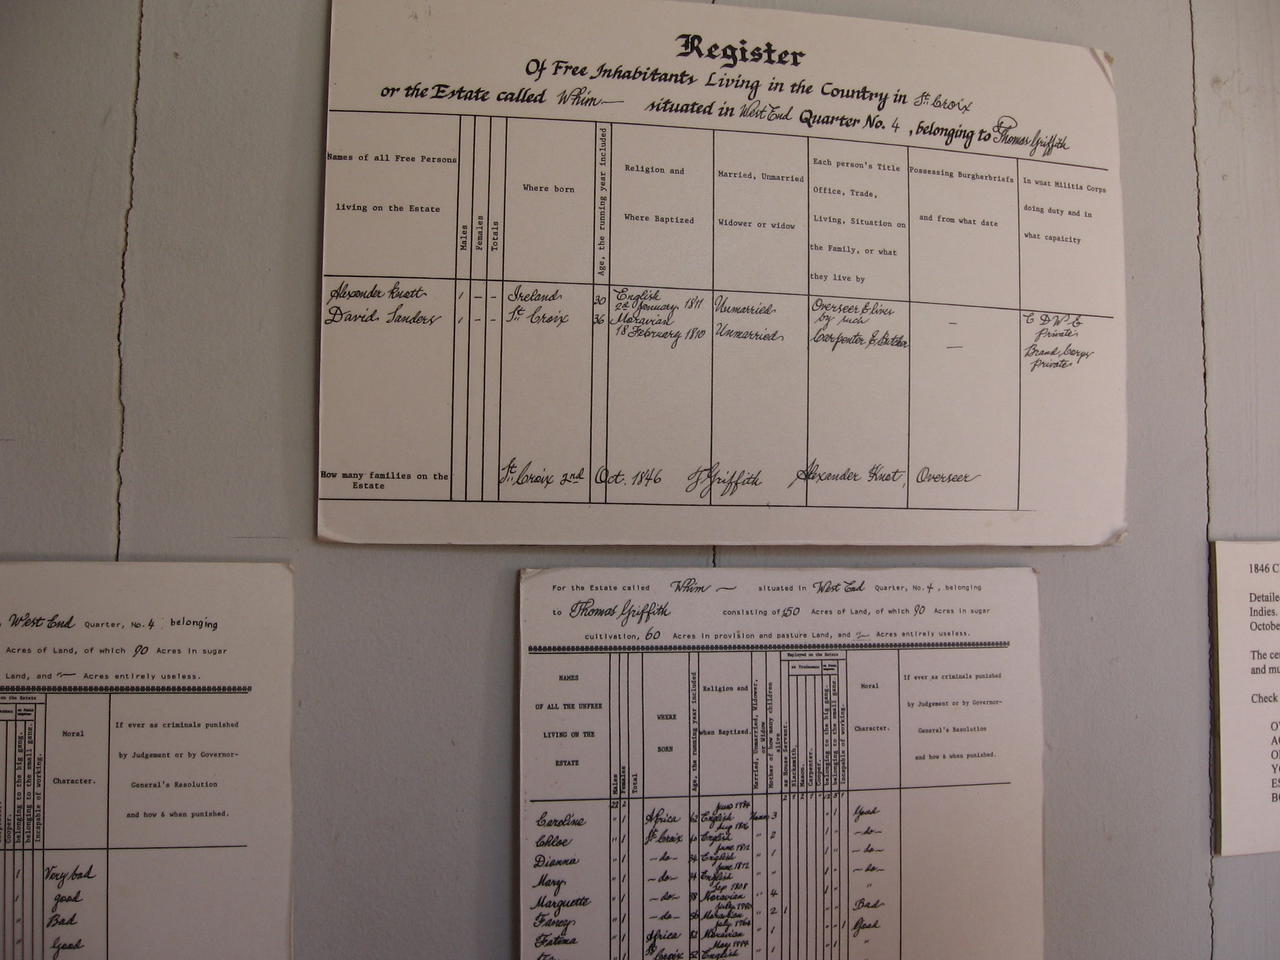 Register
Of Free Inhabitants Living in the Country in St. Croix
or the Estate called Whim situated in West End Quarter No. 4, belonging to Thomas Griffith
Names of all Free Persons
living on the Estate
Males
Females
Totals
Where born
Age, the running year included
Religion and
Where Baptized
Married, Unmarried
Widower or widow
Each person's Title
Office, Trade,
Living, Situation on
the Family, or what
they live by
Possessing Burgherbriefs
and from what date
In what Militia Corps
doing duty and in
what capaicity
Alexander Knott 1 - - Ireland 30 English Unmarried Overseer & lives — C D W C
2d January 1811 by such Private
David Sanders 1 - - St. Croix 36 Moravian Unmarried Carpenter & — Brand Corps
18 February 1810 Private
How many families on the
Estate
St. Croix 2nd Oct. 1846 J Griffith Alexander Knot, Overseer
West End Quarter, No. 4 belonging
Acres of Land, of which 90 Acres in sugar
Land, and — Acres entirely useless.
on the Estate
Cooper.
belonging to the big gang.
belonging to the small gang.
Incapable of working.
Moral
Character.
If ever as criminals punished
by Judgement or by Governor-
General's Resolution
and how & when punished.
1 Very bad
1 good
1 Bad
1 Good
For the Estate called Whim situated in West End Quarter, No. 4, belonging
to Thomas Griffith consisting of 150 Acres of Land, of which 90 Acres in sugar
cultivation, 60 Acres in provision and pasture Land, and — Acres entirely useless.
NAMES
OF ALL THE UNFREE
LIVING ON THE
ESTATE
Males
Females
Total
WHERE
BORN
Age, the running year included
Religion and
when Baptized.
Married, Unmarried, Widower,
or Widow
Mother of how many children
alive
Employed on the Estate
as Tradesmen
as House Servant.
Blacksmith.
Mason.
Carpenter.
Cooper.
belonging to the big gang.
belonging to the small gang.
Incapable of working.
Moral
Character.
If ever as criminals punished
by Judgement or by Governor-
General's Resolution
and how & when punished.
Caroline " 1 Africa English 3 Good
Chloe " 1 St Croix English " 2 -do-
Dianna " 1 -do- 34 English " 1 -do-
Mary " 1 -do- 34 English " " -do-
Marguette " 1 -do- 38 Moravian " 4 "
Fancy " 1 -do- Moravian " 2 1 Bad
Fatima " 1 Africa Moravian " 1 Good
St Croix 52 English
1846 C
Detailed
Indies.
Octobe
The ce
and mu
Check
O
A
O
Y
E
B